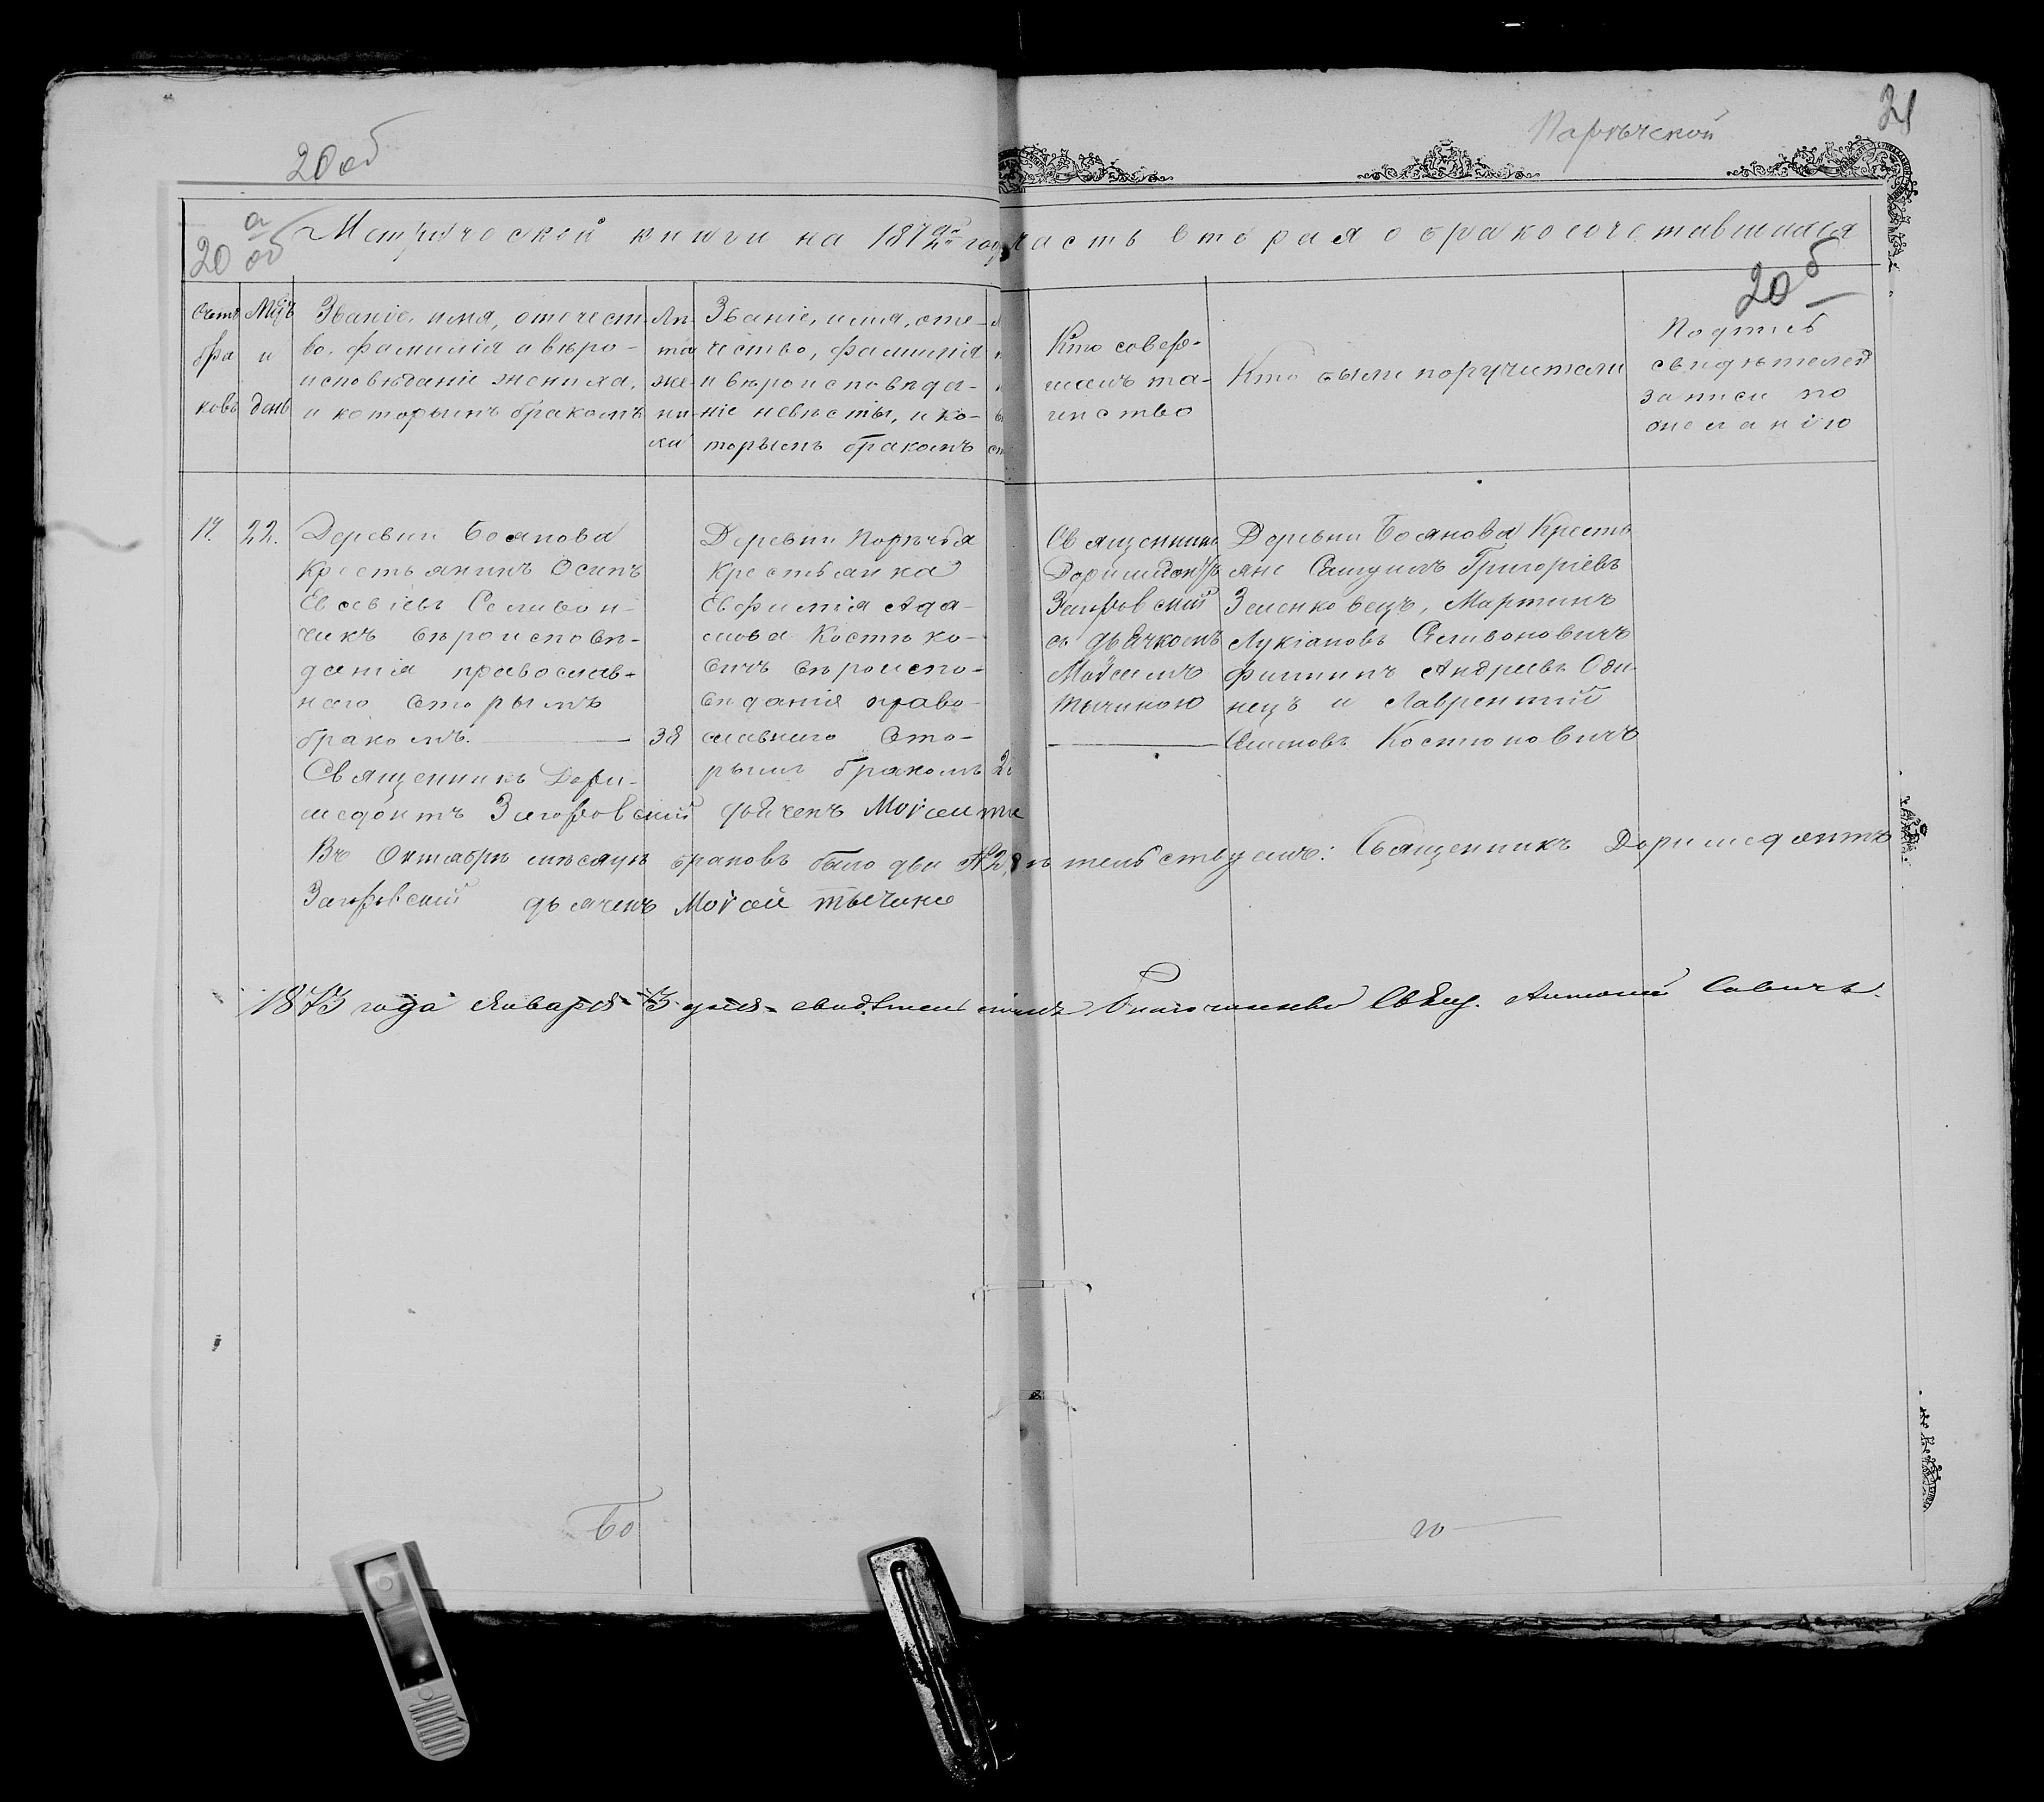 20 об
Порѣчской
21
20 а об
Метрической книги на 1872й годъ часть вторая о бракосочетавшихся
20 б
Счетъ бра ковъ
Мцъ и день
Званіе, имя, отечест-
во, фамилія и вѣро-
исповѣданіе жениха,
и которымъ бракомъ
Лѣ-
та
же-
ни-
ха
Званіе, имя, оте-
чество, фамилія
и вѣроисповѣда-
ніе невѣсты, и ко-
торымъ бракомъ
Кто совер-
шалъ та-
инство
Кто были поручители
Подпись
свидѣтелей
записи по
желанію
17.
22.
Деревни Боянова
Крестьянинъ Осипъ
Евсевіевъ Селивон-
чикъ вѣроисповѣ-
данія православ-
наго вторымъ
бракомъ.
38
Деревни Порѣчья
Крестьянка
Евфимія Ада-
мова Костюко-
вичъ вѣроиспо-
вѣданія право-
славнаго вто-
рымъ бракомъ
Священникъ
Доримедонтъ
Загоровскій
съ дьячкомъ
Моѵсеемъ
Тычиною
Деревни Боянова Кресть
яне Самуилъ Григоріевъ
Зеленковецъ, Мартинъ
Лукіановъ Селивоновичъ
Филиппъ Андреевъ Оди-
нецъ и Лаврентій
Семеновъ Костюковичъ
Священникъ Дори-
медонтъ Загоровскій дьячекъ Моѵсей
Въ Октябрѣ мѣсяцѣ браковъ было два №2, свидѣтельствуемъ: Священникъ Доримедонтъ
Загоровскій дьячекъ Моѵсей Тычина
1873 года Января 13 дня свидѣтельствовалъ Благочинный Свящ. Антоній Савичъ.